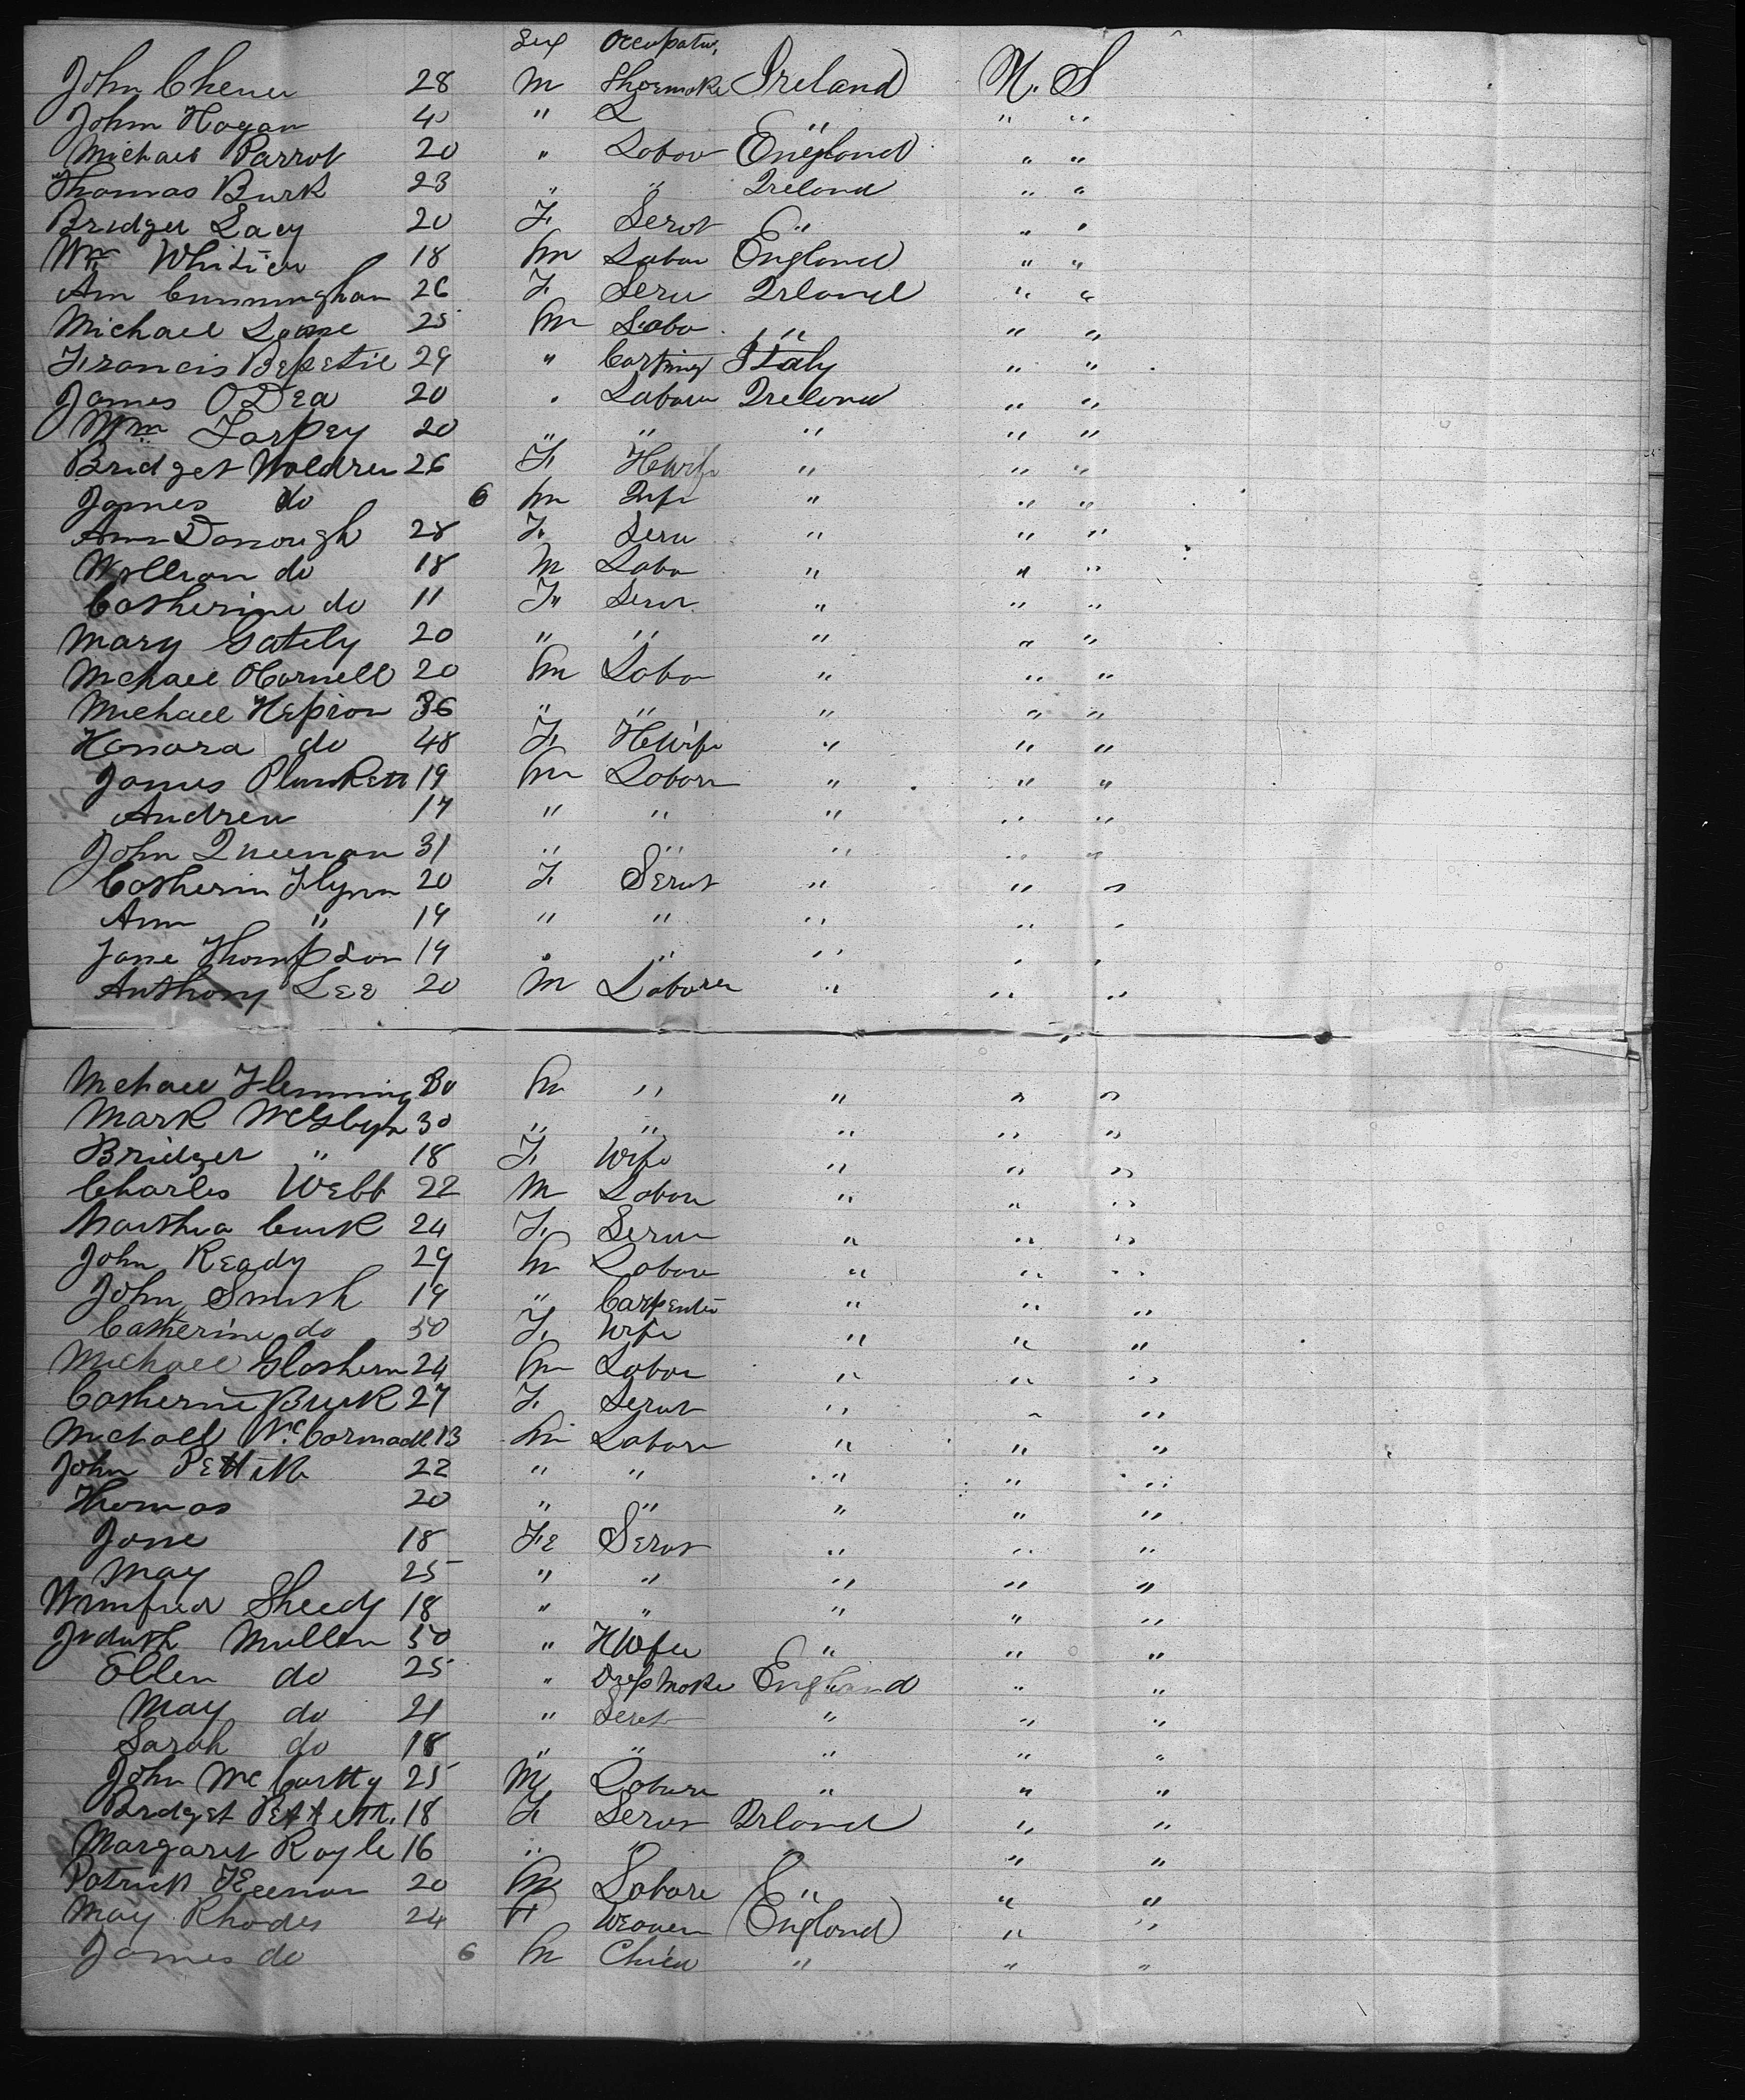 Sex Occupatn.
John Chener 28 M Shoemake Ireland U. S
John Hogan 40 " L " " "
Michael Parrot 20 " Labor England " "
Thomas Burk 23 " " Ireland " "
Bridget Lacy 20 F Servt " " "
Wm Whiten 18 M Labor England " "
Ann Cunningham 26 F Serv Irland " "
Michael 25 M Labo " " "
Francis 29 " Italy " "
James ODea 20 " Labor Ireland " "
Wm Tarpey 20 " " " " "
Bridget Woldren 26 F HWife " " "
James do 6 M Inft " " "
Ann Donough 28 F Serv " " "
William do 18 M Labo " " "
Catherine do 11 F Servt " " "
Mary Gately 20 " " " " "
Mchael 20 M Labo " " "
Michael 36 " " " " "
Honora do 48 F HWife " " "
James Plunkett 19 M Labor " " "
Andrew 17 " " " " "
John 31 " " " " "
Catherin Flynn 20 F Servt " " "
Ann " 19 " " " " "
Jane Thompson 19 " " " " "
Anthony Lee 20 M Laborer " " "
Mchael Flemming 30 M " " " "
Mark McGlyn 30 " " " " "
Bridget " 18 F Wife " " "
Charles Webb 22 M Labor " " "
Martha 24 F Serv " " "
John Ready 29 M Labor " " "
John Smith 19 " Carpenter " " "
Catherine do 50 F Wife " " "
Michael 24 M Labor " " "
Catherine Burk 27 F Servt " " "
Michael 13 M Labor " " "
John 22 " " " " "
Thomas 20 " " " " "
Jane 18 Fe Servt " " "
May 25 " " " " "
Winifred Sheedy 18 " " " " "
Judith Mullen 50 " HWife " " "
Ellen do 25 " England " "
May do 21 " Servt " " "
Sarah do 18 " " " " "
John McCartty 25 M Labor " " "
Bridget 18 F Servt Irland " "
Margaret Royle 16 " " " " "
Patrick Keenan 20 M Labore " " "
May Rhodes 24 F Weaver England " "
James do 6 M Child " " "